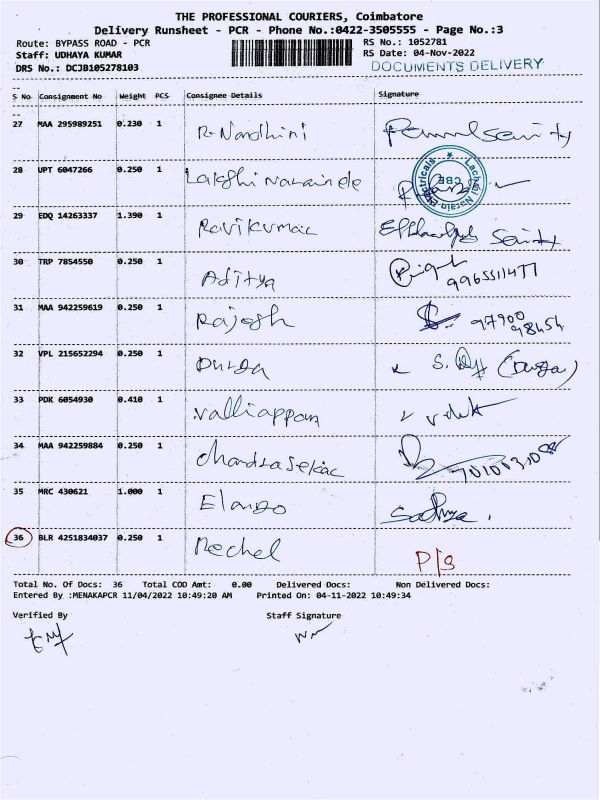 THE PROFESSIONAL COURIERS, Coimbatore
Delivery Runsheet - PCR - Phone No.:0422-3505555 - Page No.:3
Route: BYPASS ROAD - PCR RS No.: 1052781
Staff: UDHAYA KUMAR RS Date: 04-Nov-2022
DRS No.: DCJB105278103 DOCUMENTS DELIVERY
S No Consignment No Weight PCS Consignee Details Signature
27 MAA 295989251 0.230 1 R. Nandhini
28 UPT 6047266 0.250 1 Lakshi Narain ele
Lachmi Narain Electricals CBE
29 EDQ 14263337 1.390 1 Ravikumar
30 TRP 7854550 0.250 1 Aditya
9965511477
31 MAA 942259619 0.250 1 Rajesh 97900
98454
32 VPL 215652294 0.250 1 Durga S. (Durga)
33 PDK 6054930 0.410 1 Valliappan
34 MAA 942259884 0.250 1 Chandrasekar
35 MRC 430621 1.000 1 Elango Sathya.
36 BLR 4251834037 0.250 1 Rechel P/S
Total No. Of Docs: 36 Total COD Amt: 0.00 Delivered Docs: Non Delivered Docs:
Entered By :MENAKAPCR 11/04/2022 10:49:20 AM Printed On: 04-11-2022 10:49:34
Verified By Staff Signature